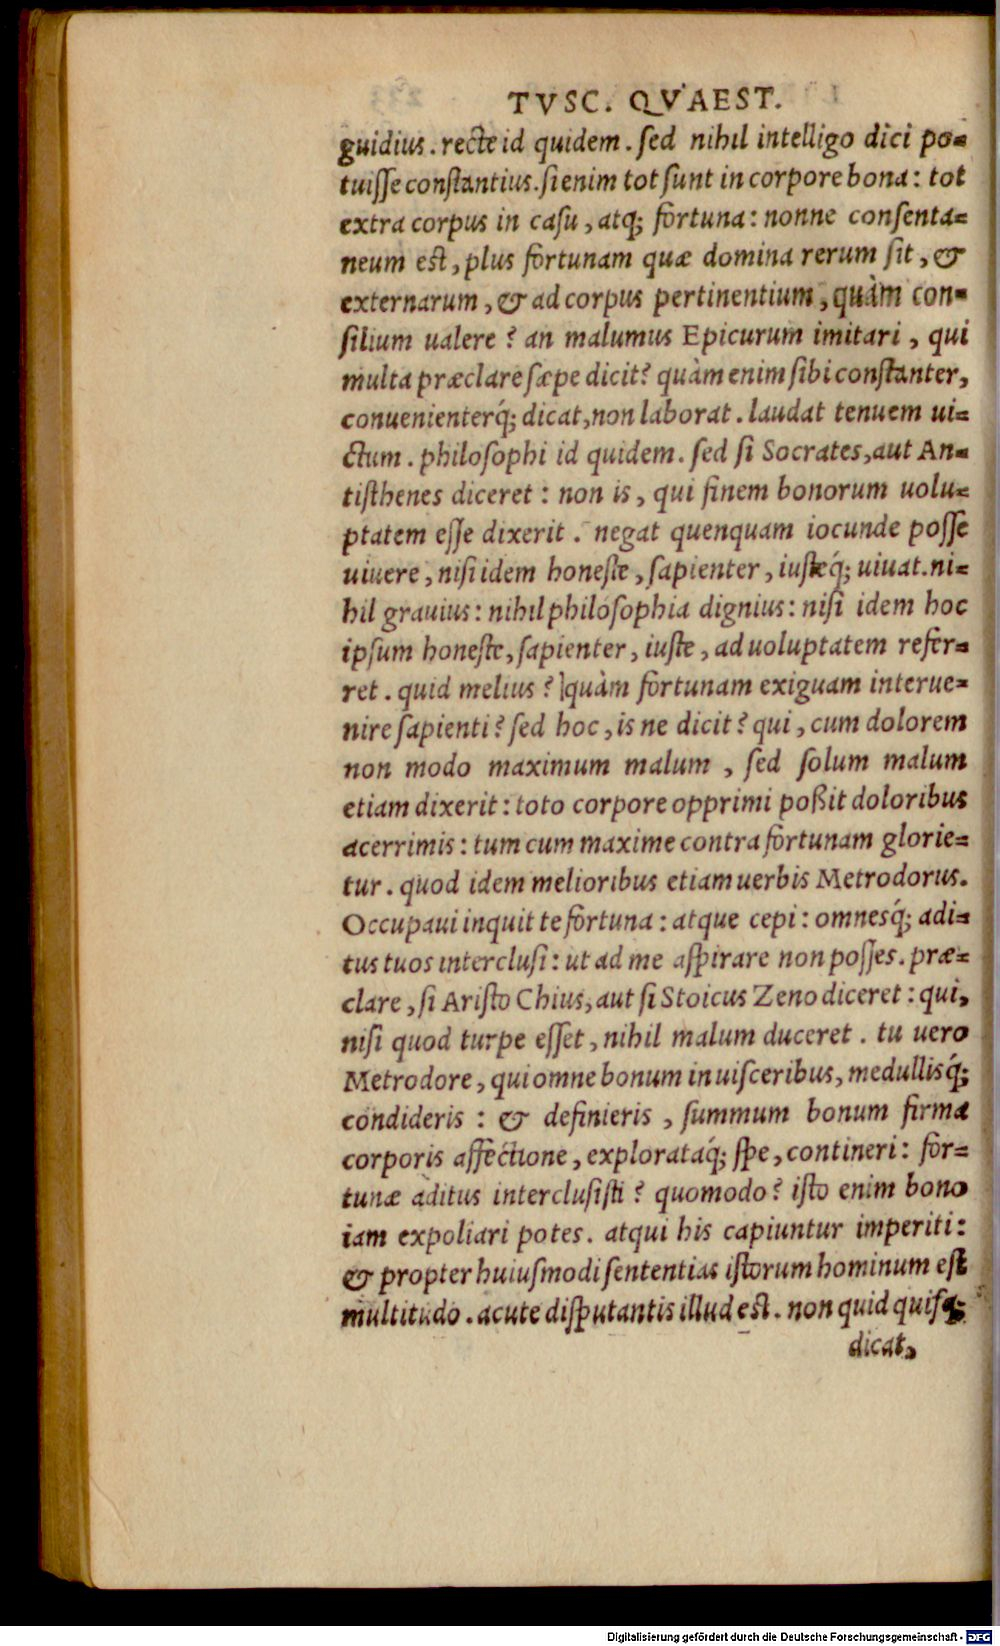 TVSC. QVAEST.
guidius. recte id quidem. sed nihil intelligo dici po=
tuisse constantius. si enim tot sunt in corpore bona: tot
extra corpus in casu, atq; fortuna: nonne consenta=
neum est, plus fortunam quæ domina rerum sit, &
externarum, & ad corpus pertinentium, quàm con=
silium ualere? an malumus Epicurum imitari, qui
multa præclare sæpe dicit? quàm enim sibi constanter,
conuenienterq́; dicat, non laborat. laudat tenuem ui=
ctum. philosophi id quidem. sed si Socrates, aut An=
tisthenes diceret: non is, qui finem bonorum uolu=
ptatem esse dixerit. negat quenquam iocunde posse
uiuere, nisi idem honeste, sapienter, iusteq́; uiuat. ni=
hil grauius: nihil philosophia dignius: nisi idem hoc
ipsum honeste, sapienter, iuste, ad uoluptatem refer=
ret. quid melius? quàm fortunam exiguam interue=
nire sapienti? sed hoc, is ne dicit? qui, cum dolorem
non modo maximum malum, sed solum malum
etiam dixerit: toto corpore opprimi poßit doloribus
acerrimis: tum cum maxime contra fortunam glorie=
tur. quod idem melioribus etiam uerbis Metrodorus.
Occupaui inquit te fortuna: atque cepi: omnesq́; adi=
tus tuos interclusi: ut ad me aspirare non posses. præ=
clare, si Aristo Chius, aut si Stoicus Zeno diceret: qui,
nisi quod turpe esset, nihil malum duceret. tu uero
Metrodore, qui omne bonum in uisceribus, medullisq́;
condideris: & definieris, summum bonum firma
corporis affectione, explorataq́; spe, contineri: for=
tunæ aditus interclusisti? quomodo? isto enim bono
iam expoliari potes. atqui his capiuntur imperiti:
& propter huiusmodi sententias istorum hominum est
multitudo. acute disputantis illud est. non quid quisq;
dicat,
Digitalisierung gefördert durch die Deutsche Forschungsgemeinschaft - DFG